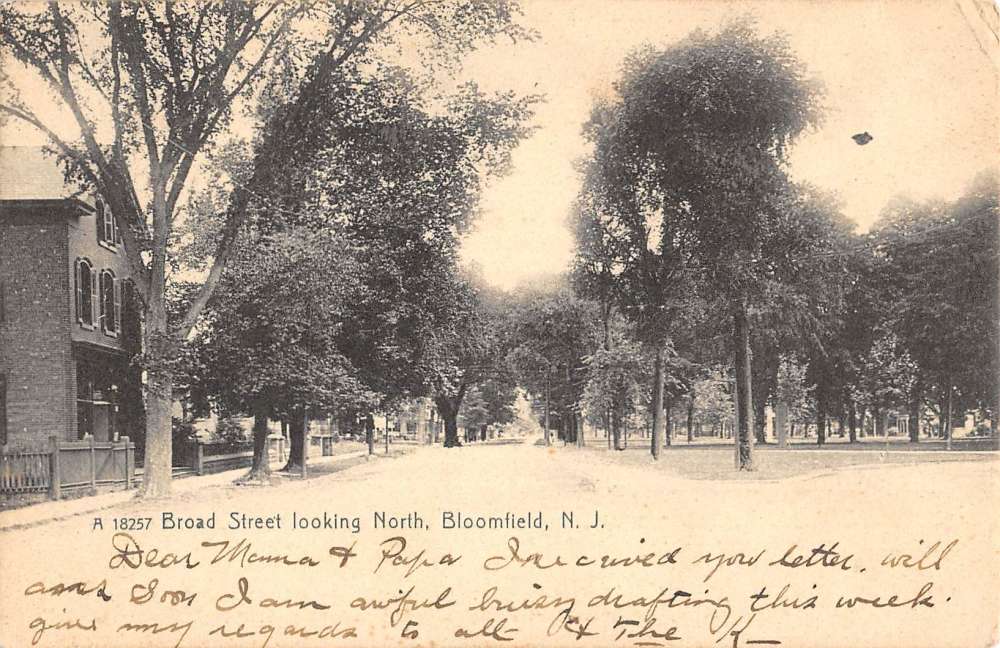 A 18257 Broad Street looking North, Bloomfield, N. J.
Dear Mama & Papa I received your letter. will
soon I am awful buisy drafting this week.
give my regards to all &